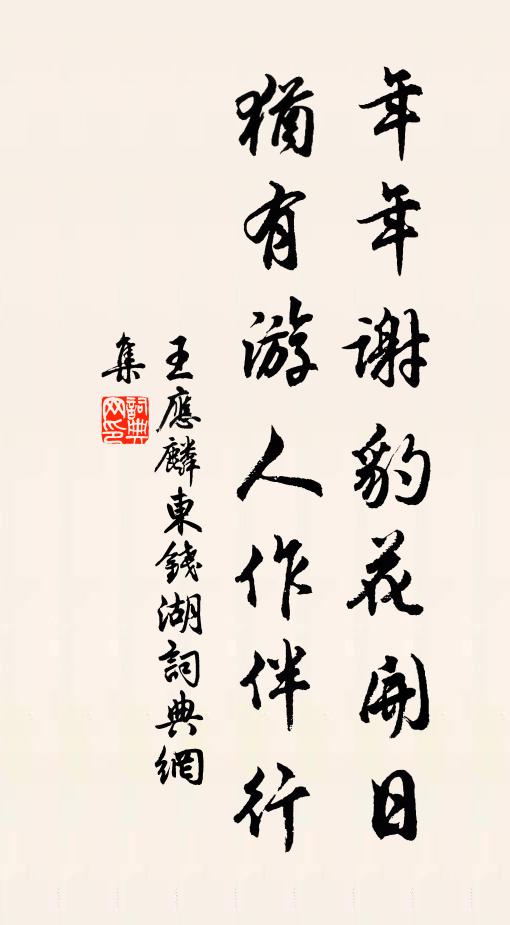 年年谢豹花开日
猶有游人作伴行
王應麟東錢湖詞典網
集
詞典
网印